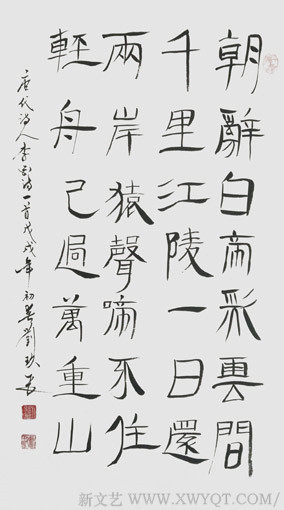 朝辭白帝彩雲間
千里江陵一日還
兩岸猿聲啼不住
輕舟已過萬重山
唐代詩人李白詩一首戊戌年初春劉
新文艺 WWW.XWYQT.COM/